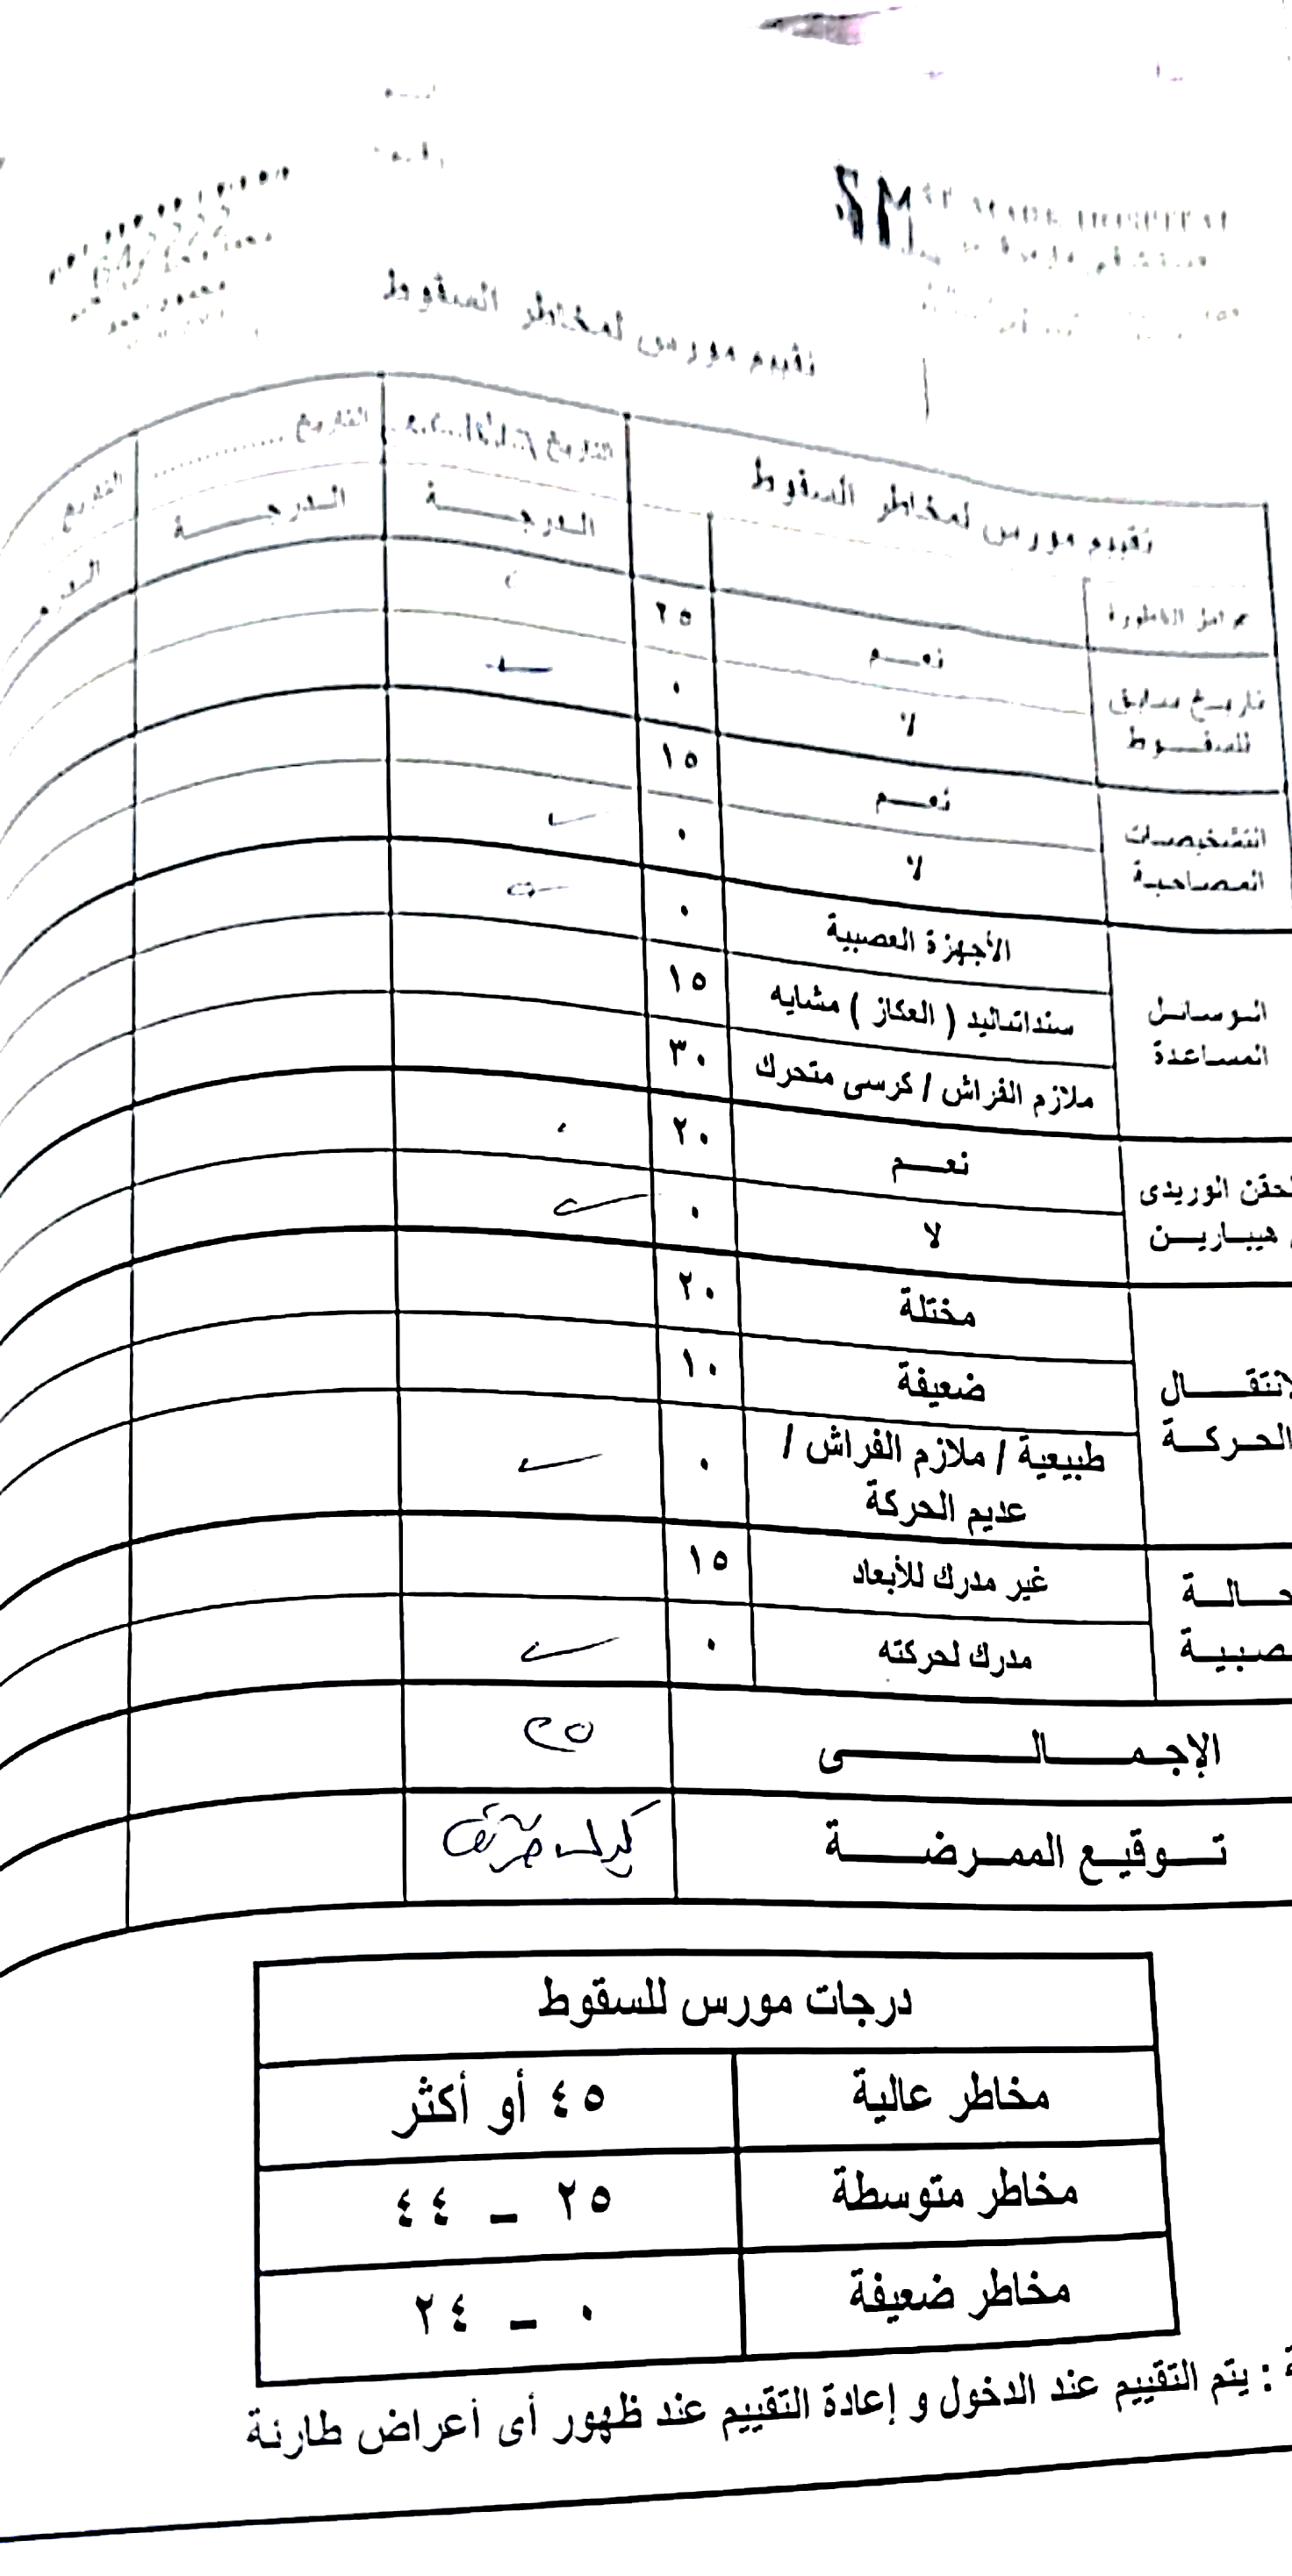 تقييم مورس لمخاطر السقوط
تقييم مورس لمخاطر السقوط
التاريخ
التاريخ
التاريخ
عوامل الخطورة
الدرجـــــة
الدرجـــــة
تاريخ سابق للسقـوط
نعـم
٢٥
لا
٠
التشخيصـات المصـاحبـة
نعـم
١٥
لا
٠
الوسـائـل المسـاعدة
الأجهزة العصبية
٠
سنداتاليد ( العكاز ) مشايه
١٥
ملازم الفراش / كرسى متحرك
٣٠
لحقن الوريدى
هيبـاريـن
نعـم
٢٠
لا
٠
لانتقـــال
الحـركـة
مختلة
٢٠
ضعيفة
١٠
طبيعية / ملازم الفراش /
عديم الحركة
٠
حـالـة
صبيـة
غير مدرك للأبعاد
١٥
مدرك لحركته
٠
الإجـمـــالـــى
٢٥
تـوقيـع الممـرضـــة
درجات مورس للسقوط
مخاطر عالية
٤٥ أو أكثر
مخاطر متوسطة
٢٥ – ٤٤
مخاطر ضعيفة
٠ – ٢٤
ة : يتم التقييم عند الدخول و إعادة التقييم عند ظهور أى أعراض طارئة